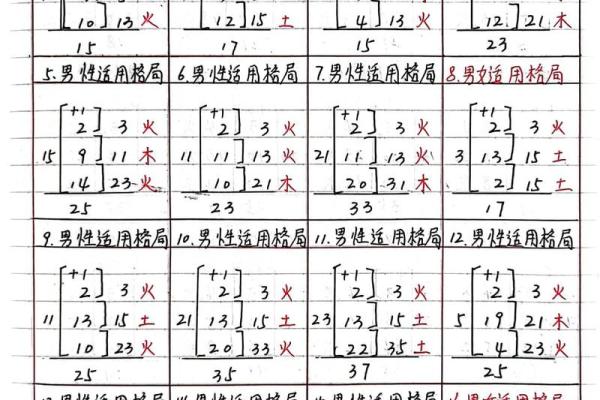 10 13 火
15
12 15 土
17
4 13 火
15
12 21 木
23
5.男性适用格局
+1
2 3 火
15 9 11 木
14 23 火
25
6.男性适用格局
+1
2 3 火
11 11 13 火
10 21 木
23
7.男性适用格局
+1
2 3 火
21 11 13 火
20 31 木
33
8.男女适用格局
+1
2 3 火
3 13 15 土
2 15 土
17
9.男性适用格局
+1
2 3 火
11 13 15 土
10 23 火
25
10.男性适用格局
+1
2 3 火
21 13 15 土
20 33 火
35
11.男性适用格局
+1
2 3 火
23 13 15 土
22 35 土
37
12.男性适用格局
+1
2 3 火
5 19 21 木
4 23 火
25